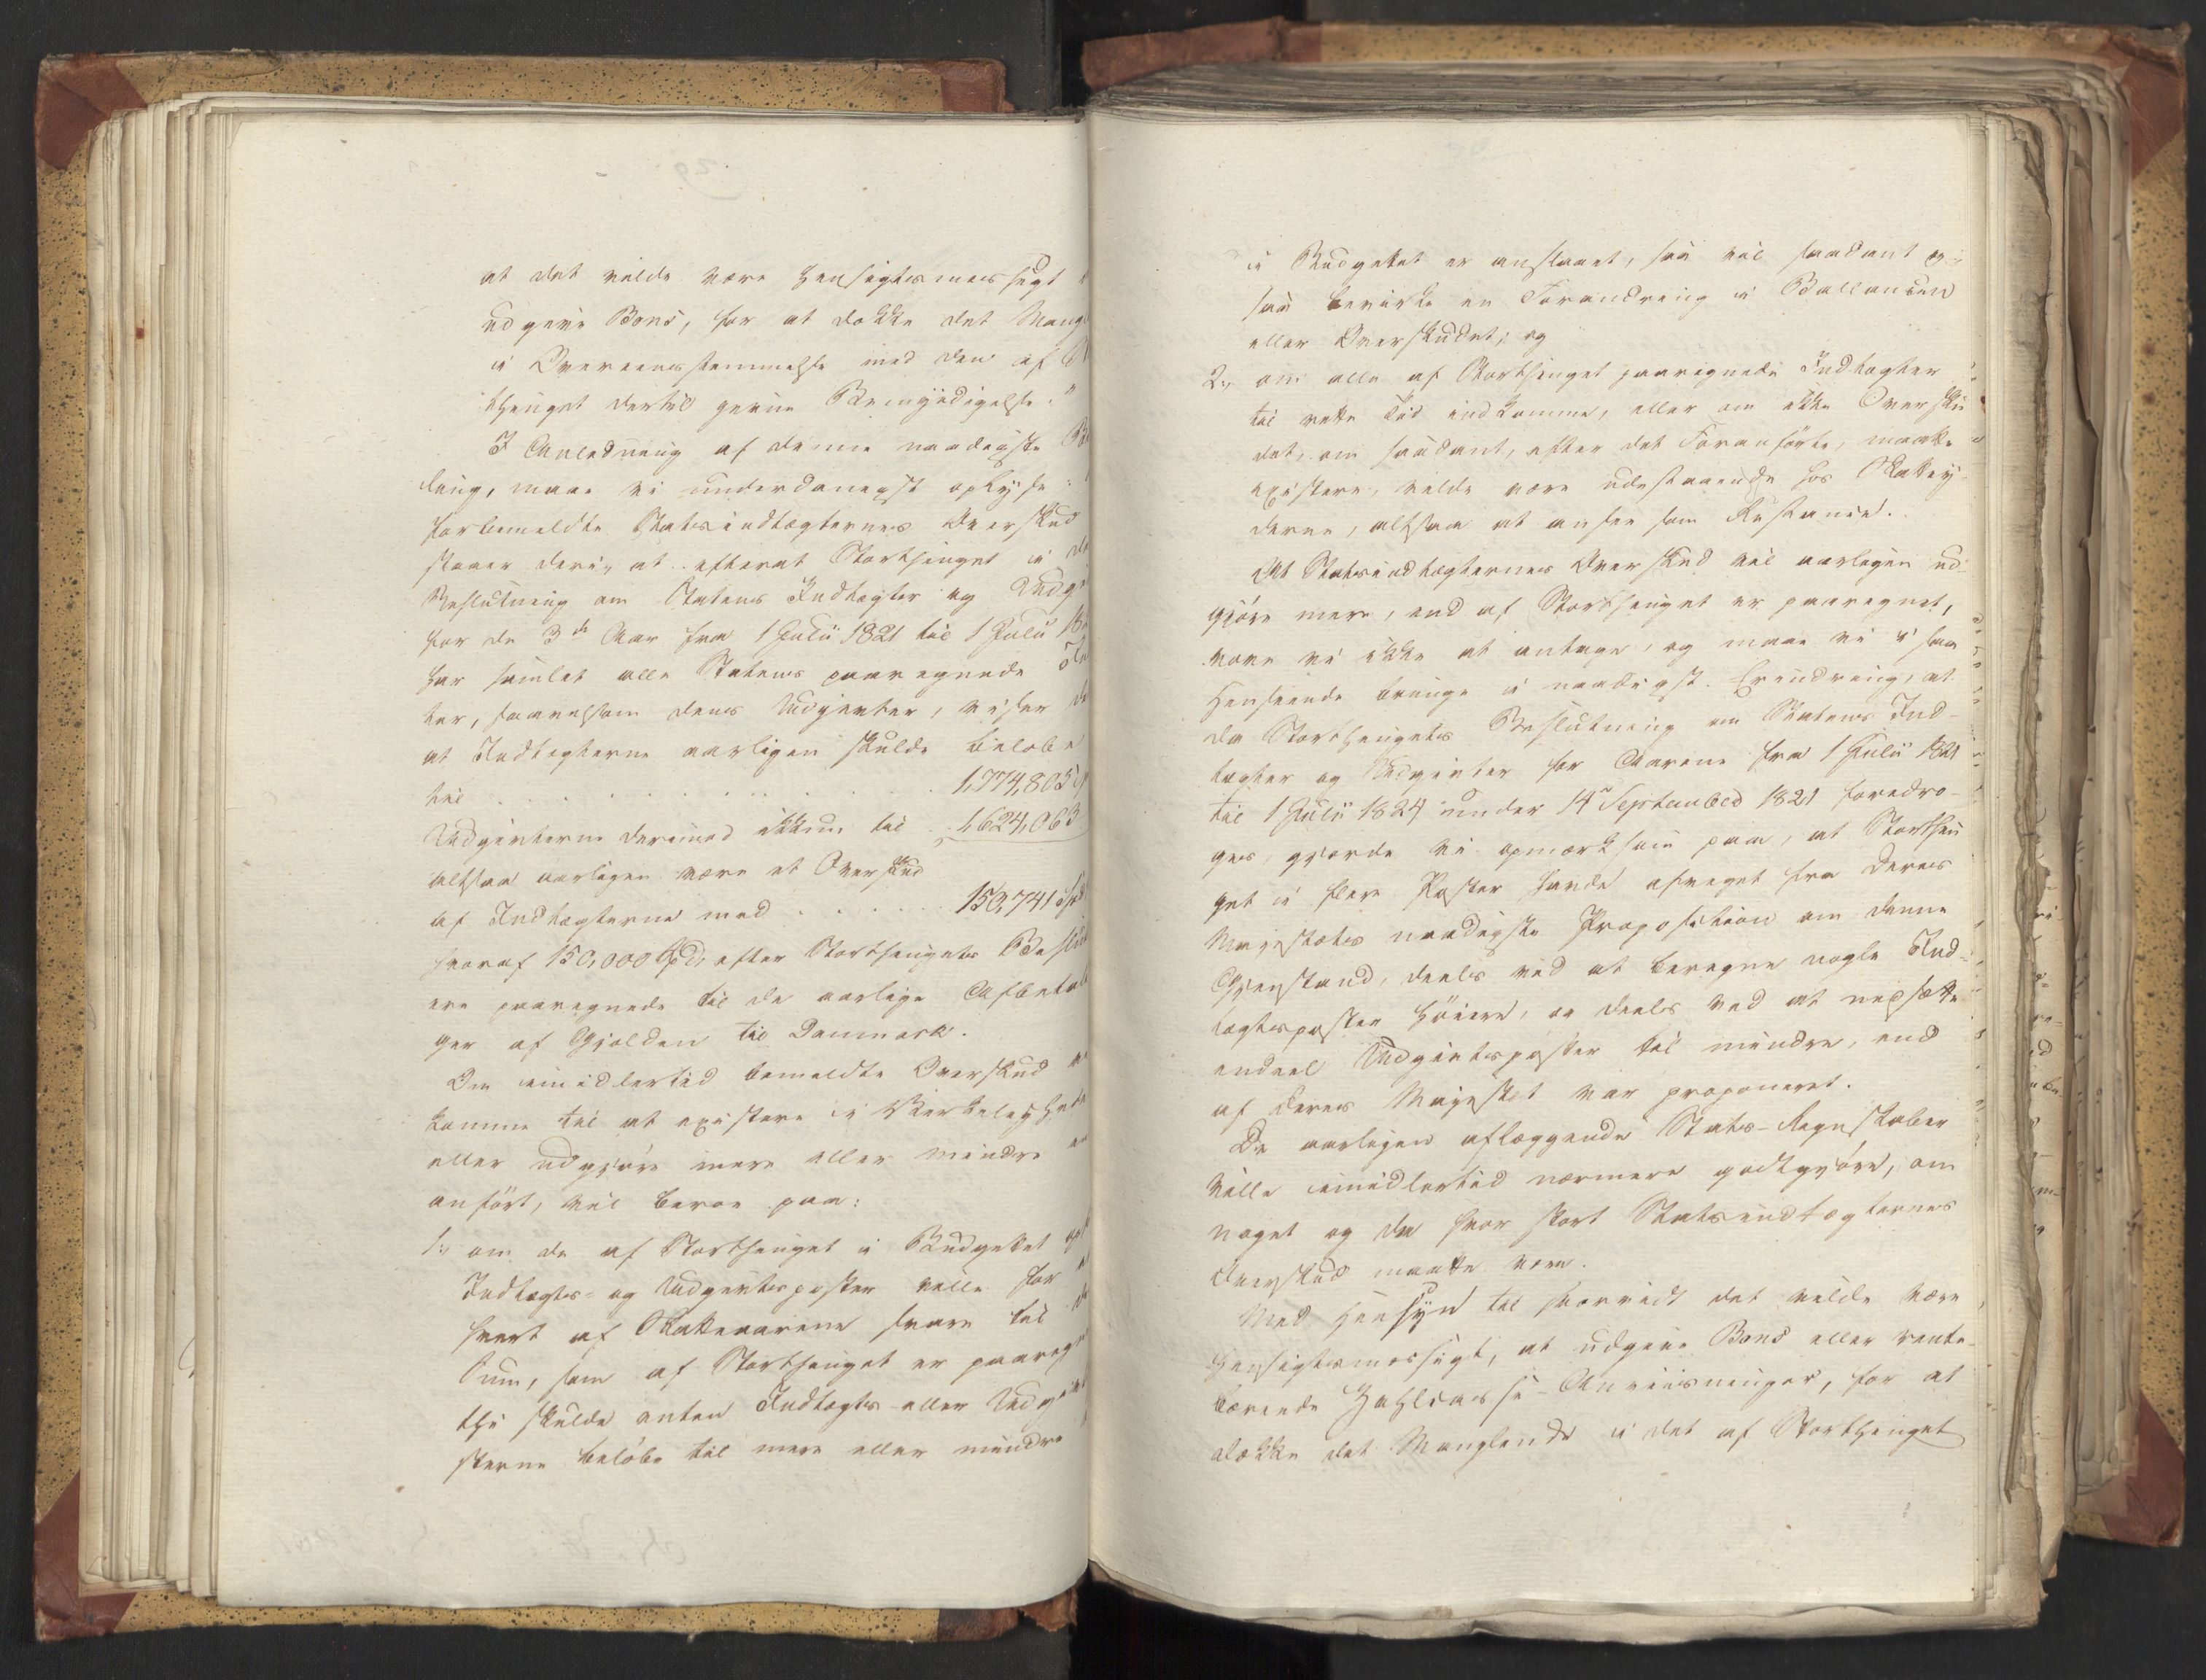 at det vilde være Hensigtsmæssigt
udgive Bons, for at dække det Mang
i Overeensstemmelse med den af
thinget dertil givne Bemyndigelse."
I Anledning af denne naadigste
ling, maae vi underdanigst oplyse
forbemeldte Statsindtægternes Overskud
staaer deri, at efterat Storthinget i
Beslutning om Statens Indtægter og Udgi
for de 3de Aar fra 1 Julii 1821 til 1 Julii
har samlet alle Statens paaregnede
ter, saavelsom dens Udgivter, viser
at Indtægterne aarligen skulde beløbe
til . . . . . . . . . . 1,774,805
Udgivterne derimod ikkun til 1,624,063
altsaa aarligen være et Overskud
af Indtægterne med . . . . . 150,741
hvoraf 150,000 Spd, efter Storthingets Beslut
ere paaregnede til de aarlige Afbetal
ger af Gjælden til Danmark.
Om imidlertid bemeldte Overskud
komme til at existere i Virkeligheden
eller udgjøre mere eller mindre
anført, vil beroe paa:
1, om de af Storthinget i Budgettet
Indtægts- og Udgivtsposter ville for
hvert af Skatteaarene svare til
Sum, som af Storthinget er paaregn
thi skulde enten Indtægts- eller Udgivts
sterne beløbe til mere eller mindre
i Budgettet er anslaaet, saa vil saadant og-
saa bevirke en Forandring i Ballancen
eller Overskudet; og
2, om alle af Storthinget paaregnede Indtægter
til rette Tid indkomme, eller om ikke Oversku
det, om saadant, efter det Foranførte, maatte
existere, vilde være udestaaende hos Skattey-
derne, altsaa at ansee som Restance.
At Statsindtægternes Overskud vil aarligen ud-
gjøre mere, end af Storthinget er paaregnet,
vove vi ikke at antage, og maae vi i saa
Henseende bringe i naadigst Erindring, at
da Storthingets Beslutning om Statens Ind-
tægter og Udgivter for Aarene fra 1 Julii 1821
til 1 Julii 1824 under 14de September 1821 foredro-
ges, gjorde vi opmærksom paa, at Storthin
get i flere Poster havde afveget fra Deres
Majestæts naadigste Proposition om denne
Gjenstand, deels ved at beregne nogle Ind-
tægtsposter høiere, og deels ved at nedsætte
endeel Udgivtsposter til mindre, end
af Deres Majestæt var proponeret.
De aarligen aflæggende Stats-Regnskaber
ville imidlertid nærmere godtgjøre, om
noget og da hvor stort Statsindtægternes
Overskud maatte være.
Med Hensyn til hvorvidt det vilde være
Hensigtsmæssigt, at udgive Bons eller rente-
bærende Zahlcasse-Anviisninger, for at
dække det Manglende i det af Storthinget